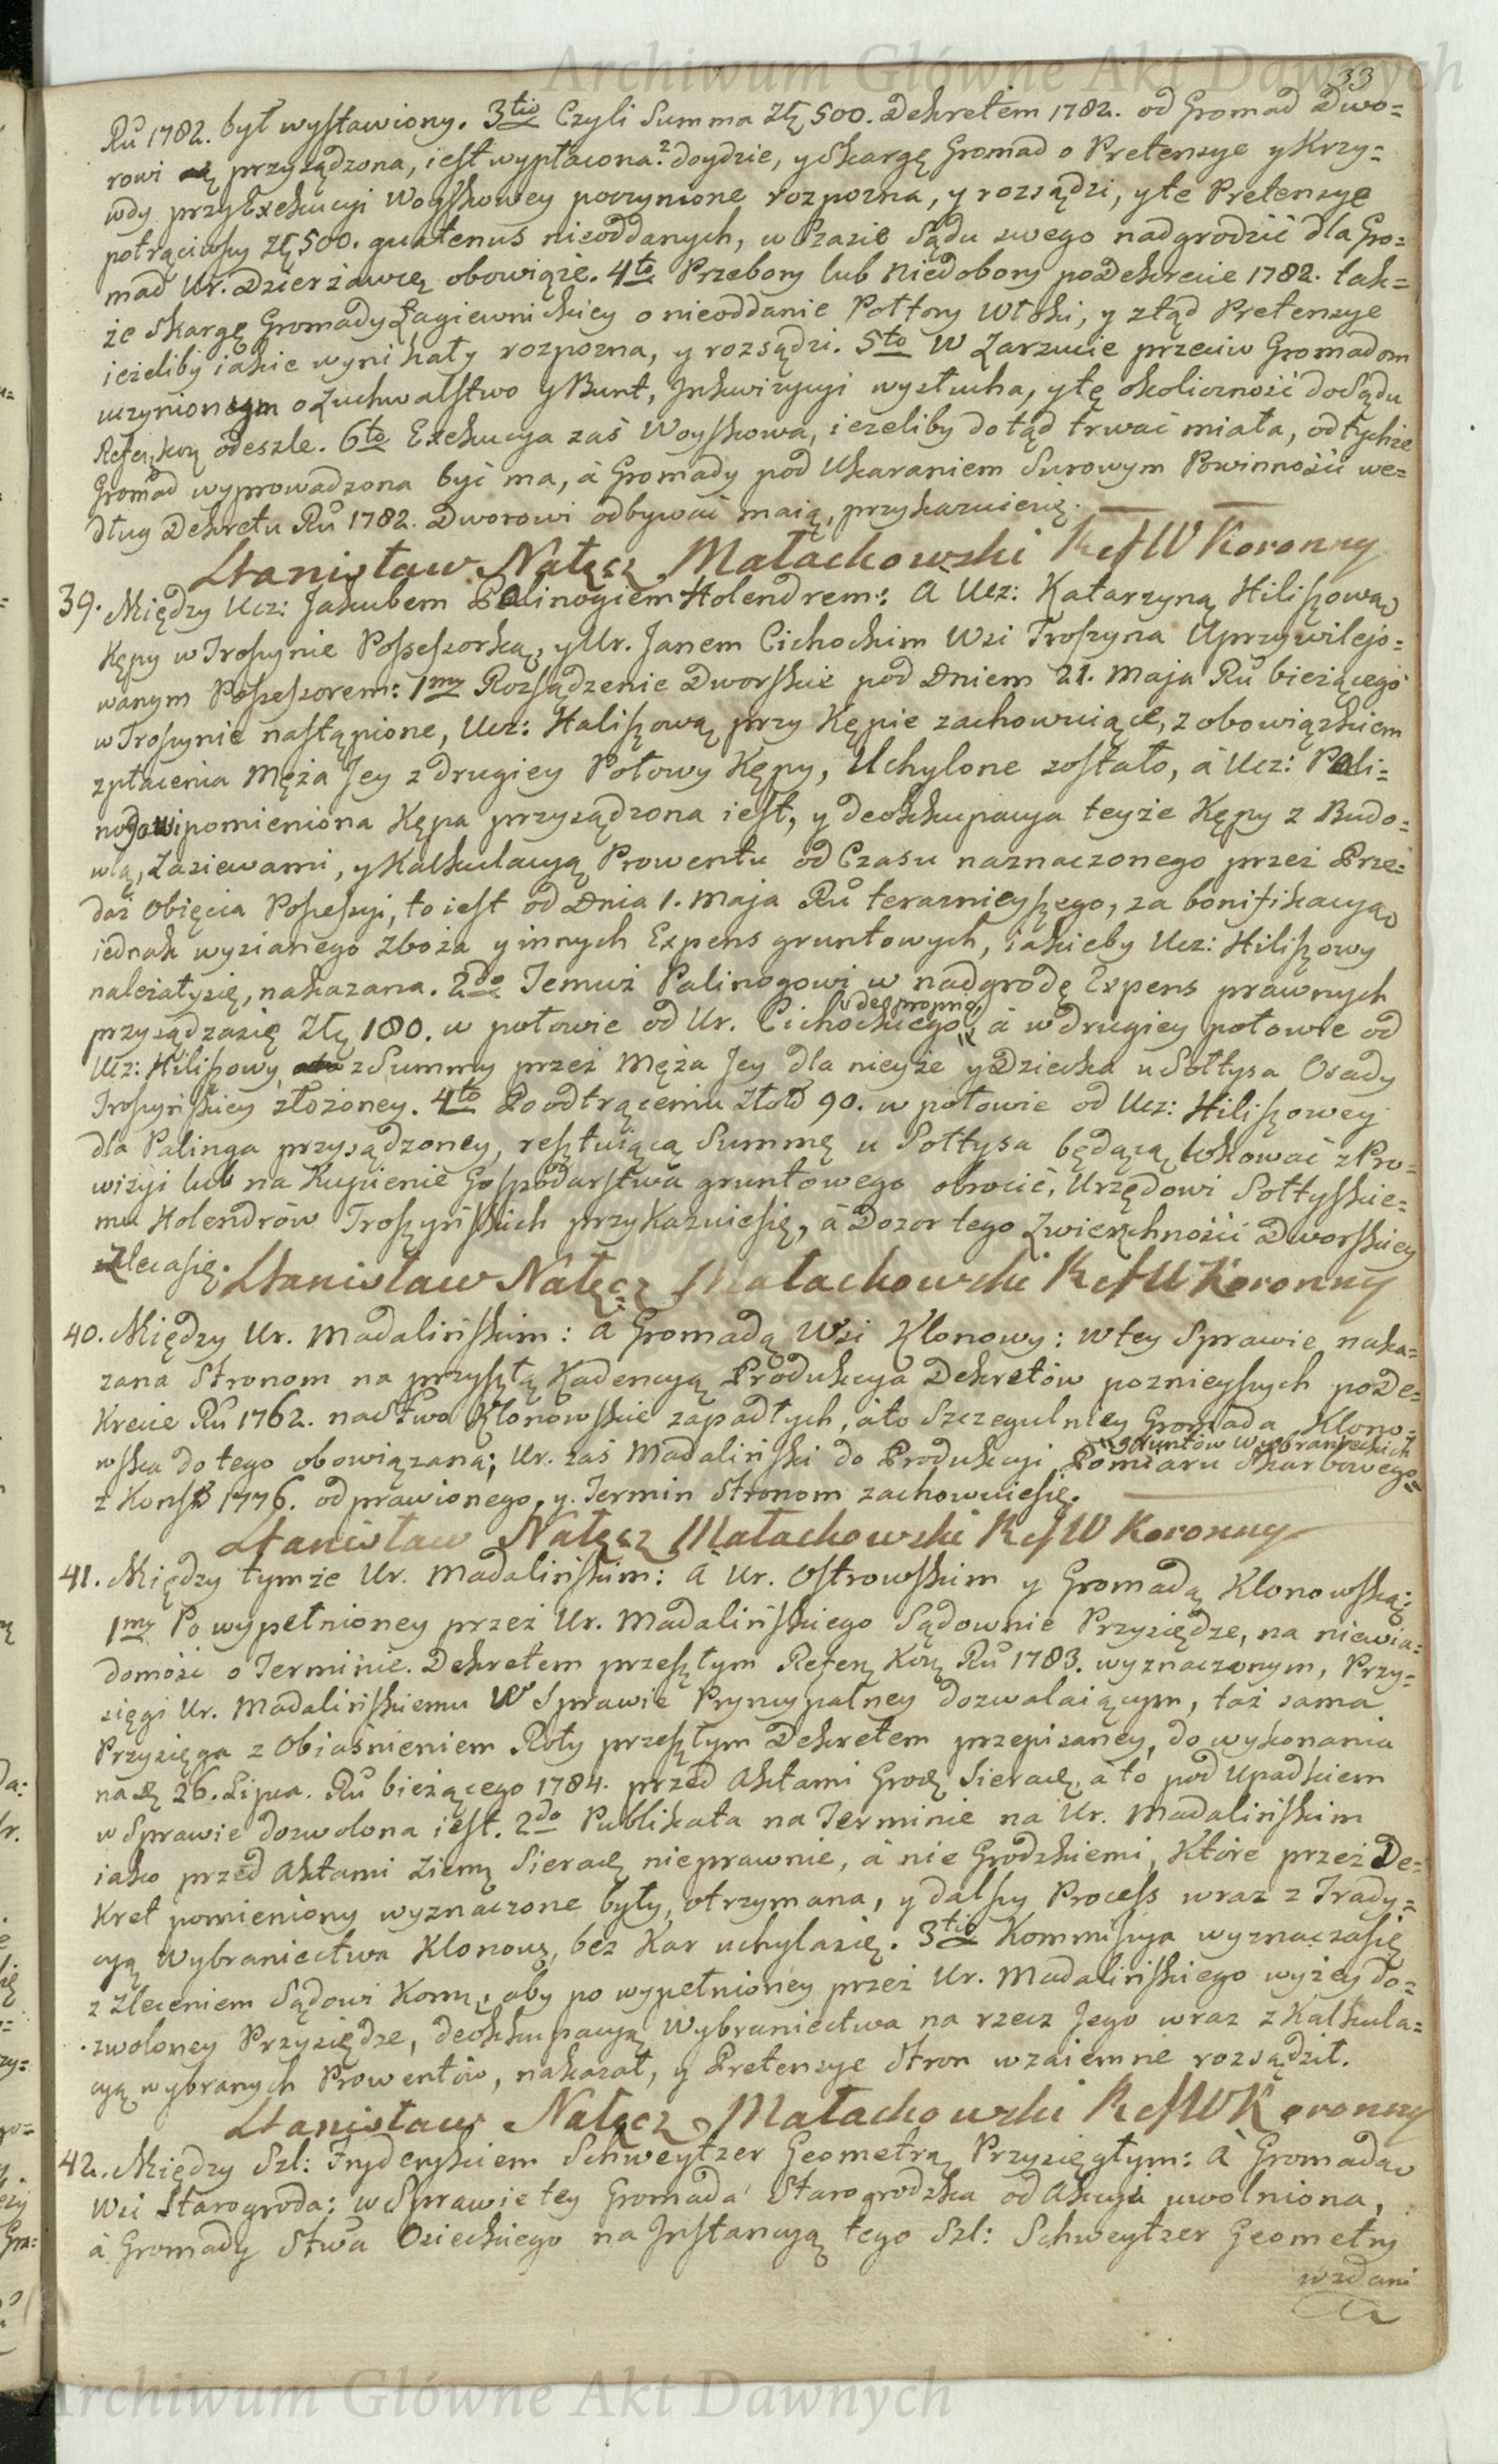 Archiwum Główne Akt Dawnych
33
Rű 1782. był wystawiony. 3tio Czyli Summa Zł 500. Dekretem 1782. od Gromad Dwo=
rowi przysądzona, iest wypłacona? doydzie, y Skargę Gromad o Pretensye y Krzy=
wdy przy Exekucyi Woyskowey poczynione rozpozna, y rozsądzi, y te Pretensye
potrąciwszy Zł 500. quatenus nieoddanych, w Czasie Sądu swego nadgrodzić dla Gro=
mad Ur. Dzierżawcę obowiąże. 4to Przebory lub Niedobory po Dekrecie 1782. tak=
że Skargę Gromady Łagiewnickiey o nieoddanie Połtory Włoki, y ztąd Pretensye
ieżeliby iakie wynikały rozpozna, y rozsądzi. 5to W Zarzucie przeciw Gromadom
uczynionym o Zuchwalstwo y Bunt, Inkwizycyi wysłucha, y tę okoliczność do Sądu
Refer. Kor. odeszle. 6to Exekucya zaś Woyskowa, ieżeliby dotąd trwać miała, od tychże
Gromad wyprowadzona być ma, á Gromady pod Ukaraniem Surowym Powinności we=
dług Dekretu Rű 1782. Dworowi odbywać maią, przykazuiesię.
Stanisław Nałęcz Małachowski RefW Koronny
39. Między Ucz: Jakubem Palinogiem Holendrem: A Ucz: Katarzyną Hiliszową
Kępy w Troszynie Possessorką, y Ur. Janem Cichockim Wsi Troszyna Uprzywilejo=
wanym Possessorem: 1my Rozsądzenie Dworskie pod Dniem 21. Maja Rű bieżącego
w Troszynie nastąpione, Ucz: Haliszową przy Kępie zachowuiące, z obowiązkiem
zpłacenia Męża Jey z drugiey Połowy Kępy, Uchylone zostało, á Ucz: Pali=
nogowi pomieniona Kępa przysądzona iest, y deokkupacya teyże Kępy z Budo=
wlą, Zasiewami, y Kalkulacyą Prowentu od Czasu naznaczonego przez Prze=
daż Obięcia Possessyi, to iest od Dnia 1. Maja Rű teraznieyszego, za bonifikacyą
iednak wysianego Zboża y innych Expens gruntowych, iakieby Ucz: Hiliszowy
należałysię, nakazana. 2do Temuż Palinogowi w nadgrodę Expens prawnych
przysądzasię Zł 180. w połowie od Ur. Cichockiego de proprio, á w drugiey połowie od
Ucz: Hiliszowy z Summy przez Męża Jey dla nieyże y Dziecka u Sołtysa Osady
Troszyńskiey złożoney. 4to Po odtrąceniu Złotch 90. w połowie od Ucz: Hiliszowey
dla Palinga przysądzoney, resztuiącą Summę u Sołtysa będącą, lokować z Pro=
wizyi lub na Kupienie Gospodarstwa gruntowego obrocić, Urzędowi Sołtyskie=
mu Holendrów Troszyńskich przykazuiesię, á Dozor tego Zwierzchności Dworskiey
zlecasię. Stanisław Nałęcz Małachowski RefW Koronny
40. Między Ur. Madalińskim: á Gromadą Wsi Klonowy: w tey Sprawie naka=
zana Stronom na przyszłą Kadencyą Produkcya Dekretów poznieyszych po De=
krecie Rű 1762. na Stwo Klonowskie zapadłych, á to Szczegulniey Gromada Klono=
wska do tego obowiązana; Ur. zaś Madaliński do Produkcyi Pomiaru gruntów wybranieckich Skarbowego
z Konst: 1776. odprawionego, y Termin Stronom zachowuiesię.
Stanisław Nałęcz Małachowski RefW Koronny
41. Między tymże Ur. Madalińskim: á Ur. Ostrowskim y Gromadą Klonowską:
1my Po wypełnioney przez Ur. Madalińskiego Sądownie Przysiędze, na niewia=
domość o Terminie. Dekretem przeszłym Refer. Kor. Rű 1783. wyznaczonym, Przy=
sięgi Ur. Madalińskiemu W Sprawie Pryncypalney dozwalaiącym, taż sama
Przysięga z Obiaśnieniem Roty przeszłym Dekretem przepisaney, do wykonania
na d. 26. Lipca. Rű bieżącego 1784. przed Aktami Grod. Sieradz. á to pod Upadkiem
w Sprawie dozwolona iest. 2do Publikata na Terminie na Ur. Madalińskim
iako przed Aktami Ziem. Sieradz. nieprawnie, á nie Grodzkiemi, które przez De=
kret pomieniony wyznaczone były, otrzymana, y dalszy Process wraz z Trady=
cyą Wybraniectwa Klonowę, bez Kar uchylasię. 3tio Kommissya wyznaczasię
z zleceniem Sądowi Komm., aby po wypełnioney przez Ur. Madalińskiego wyżey do=
zwoloney Przysiędze, deokkupacyą Wybraniectwa na rzecz Jego wraz z Kalkula=
cyą wybranych Prowentów, nakazał, y Pretensye Stron wzaiemne rozsądził.
Stanisław Nałęcz Małachowski RefW Koronny
42. Między Szl: Fryderykiem Schweytzer Geometrą Przysięgłym: á Gromadą
Wsi Starogroda: w Sprawie tey Gromada Starogrodzka od Akcyi uwolniona,
á Gromady Stwa Osieckiego na Instancyą tego Szl: Schweytzer Geometry
wzdani
Archiwum Główne Akt Dawnych